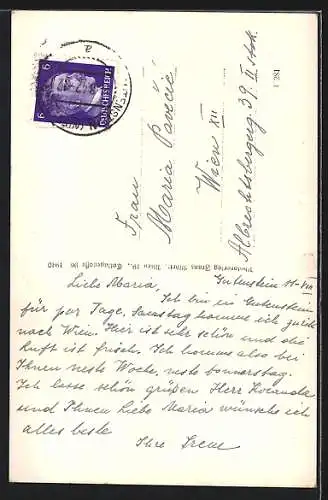 DEUTSCHES REICH
6 6
a
Frau
Maria
Wien XII
Albrechtsbergerg. 39, II Stock
1281
Gutenstein 11. VIII
Liebe Maria,
Ich bin in Gutenstein
für par Tage, Samstag komme ich zurük
nach Wien. Hier ist sehr schön und die
Luft ist frisch. Ich komme also bei
Ihnen neste Woche, neste Donnerstag.
Ich lasse schön grüßen Herr
und Ihnen Liebe Maria wünsche ich
alles beste
Ihre Irene